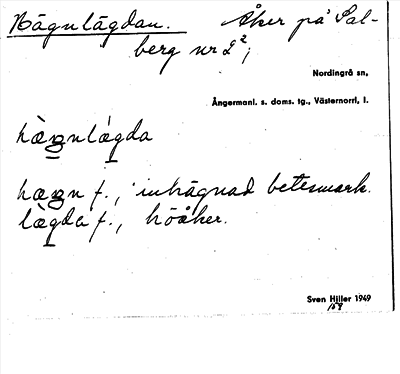 Hägnlägdan. Åker på Sal-
berg nr 2²;
Nordingrå sn,
Ångermanl. s. doms. tg., Västernorrl. l.
hæ̀gnlágda
hægn f., inhägnad betesmark.
làgda f., höåker.
Sven Hiller 1949